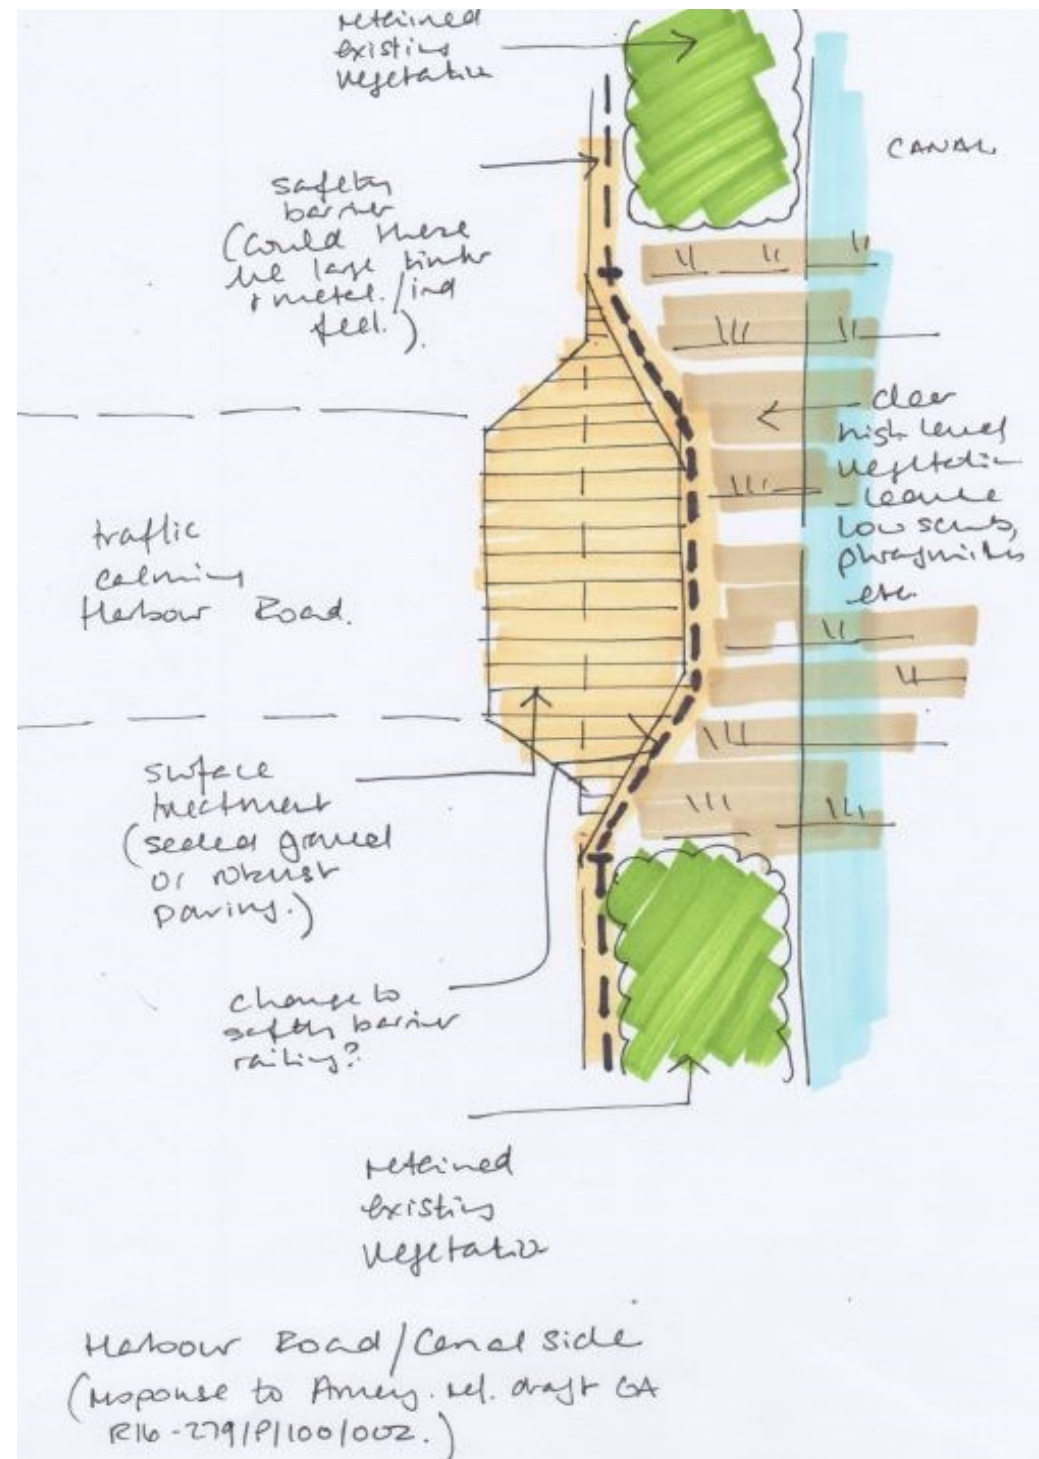 retained
existing
vegetation
CANAL
safety
barrier
(could these
be large timber
+ metel. / ind
feel.).
clear
high level
vegetation
- leave
low scrub,
phragmites
etc.
traffic
calming
Harbour Road.
surface
treatment
(sealed gravel
or robust
paving.)
change to
safety barrier
railing?
retained
existing
vegetation
Harbour Road/Canal side
(response to Amey. rel. draft GA
R16-279/P/100/002.)